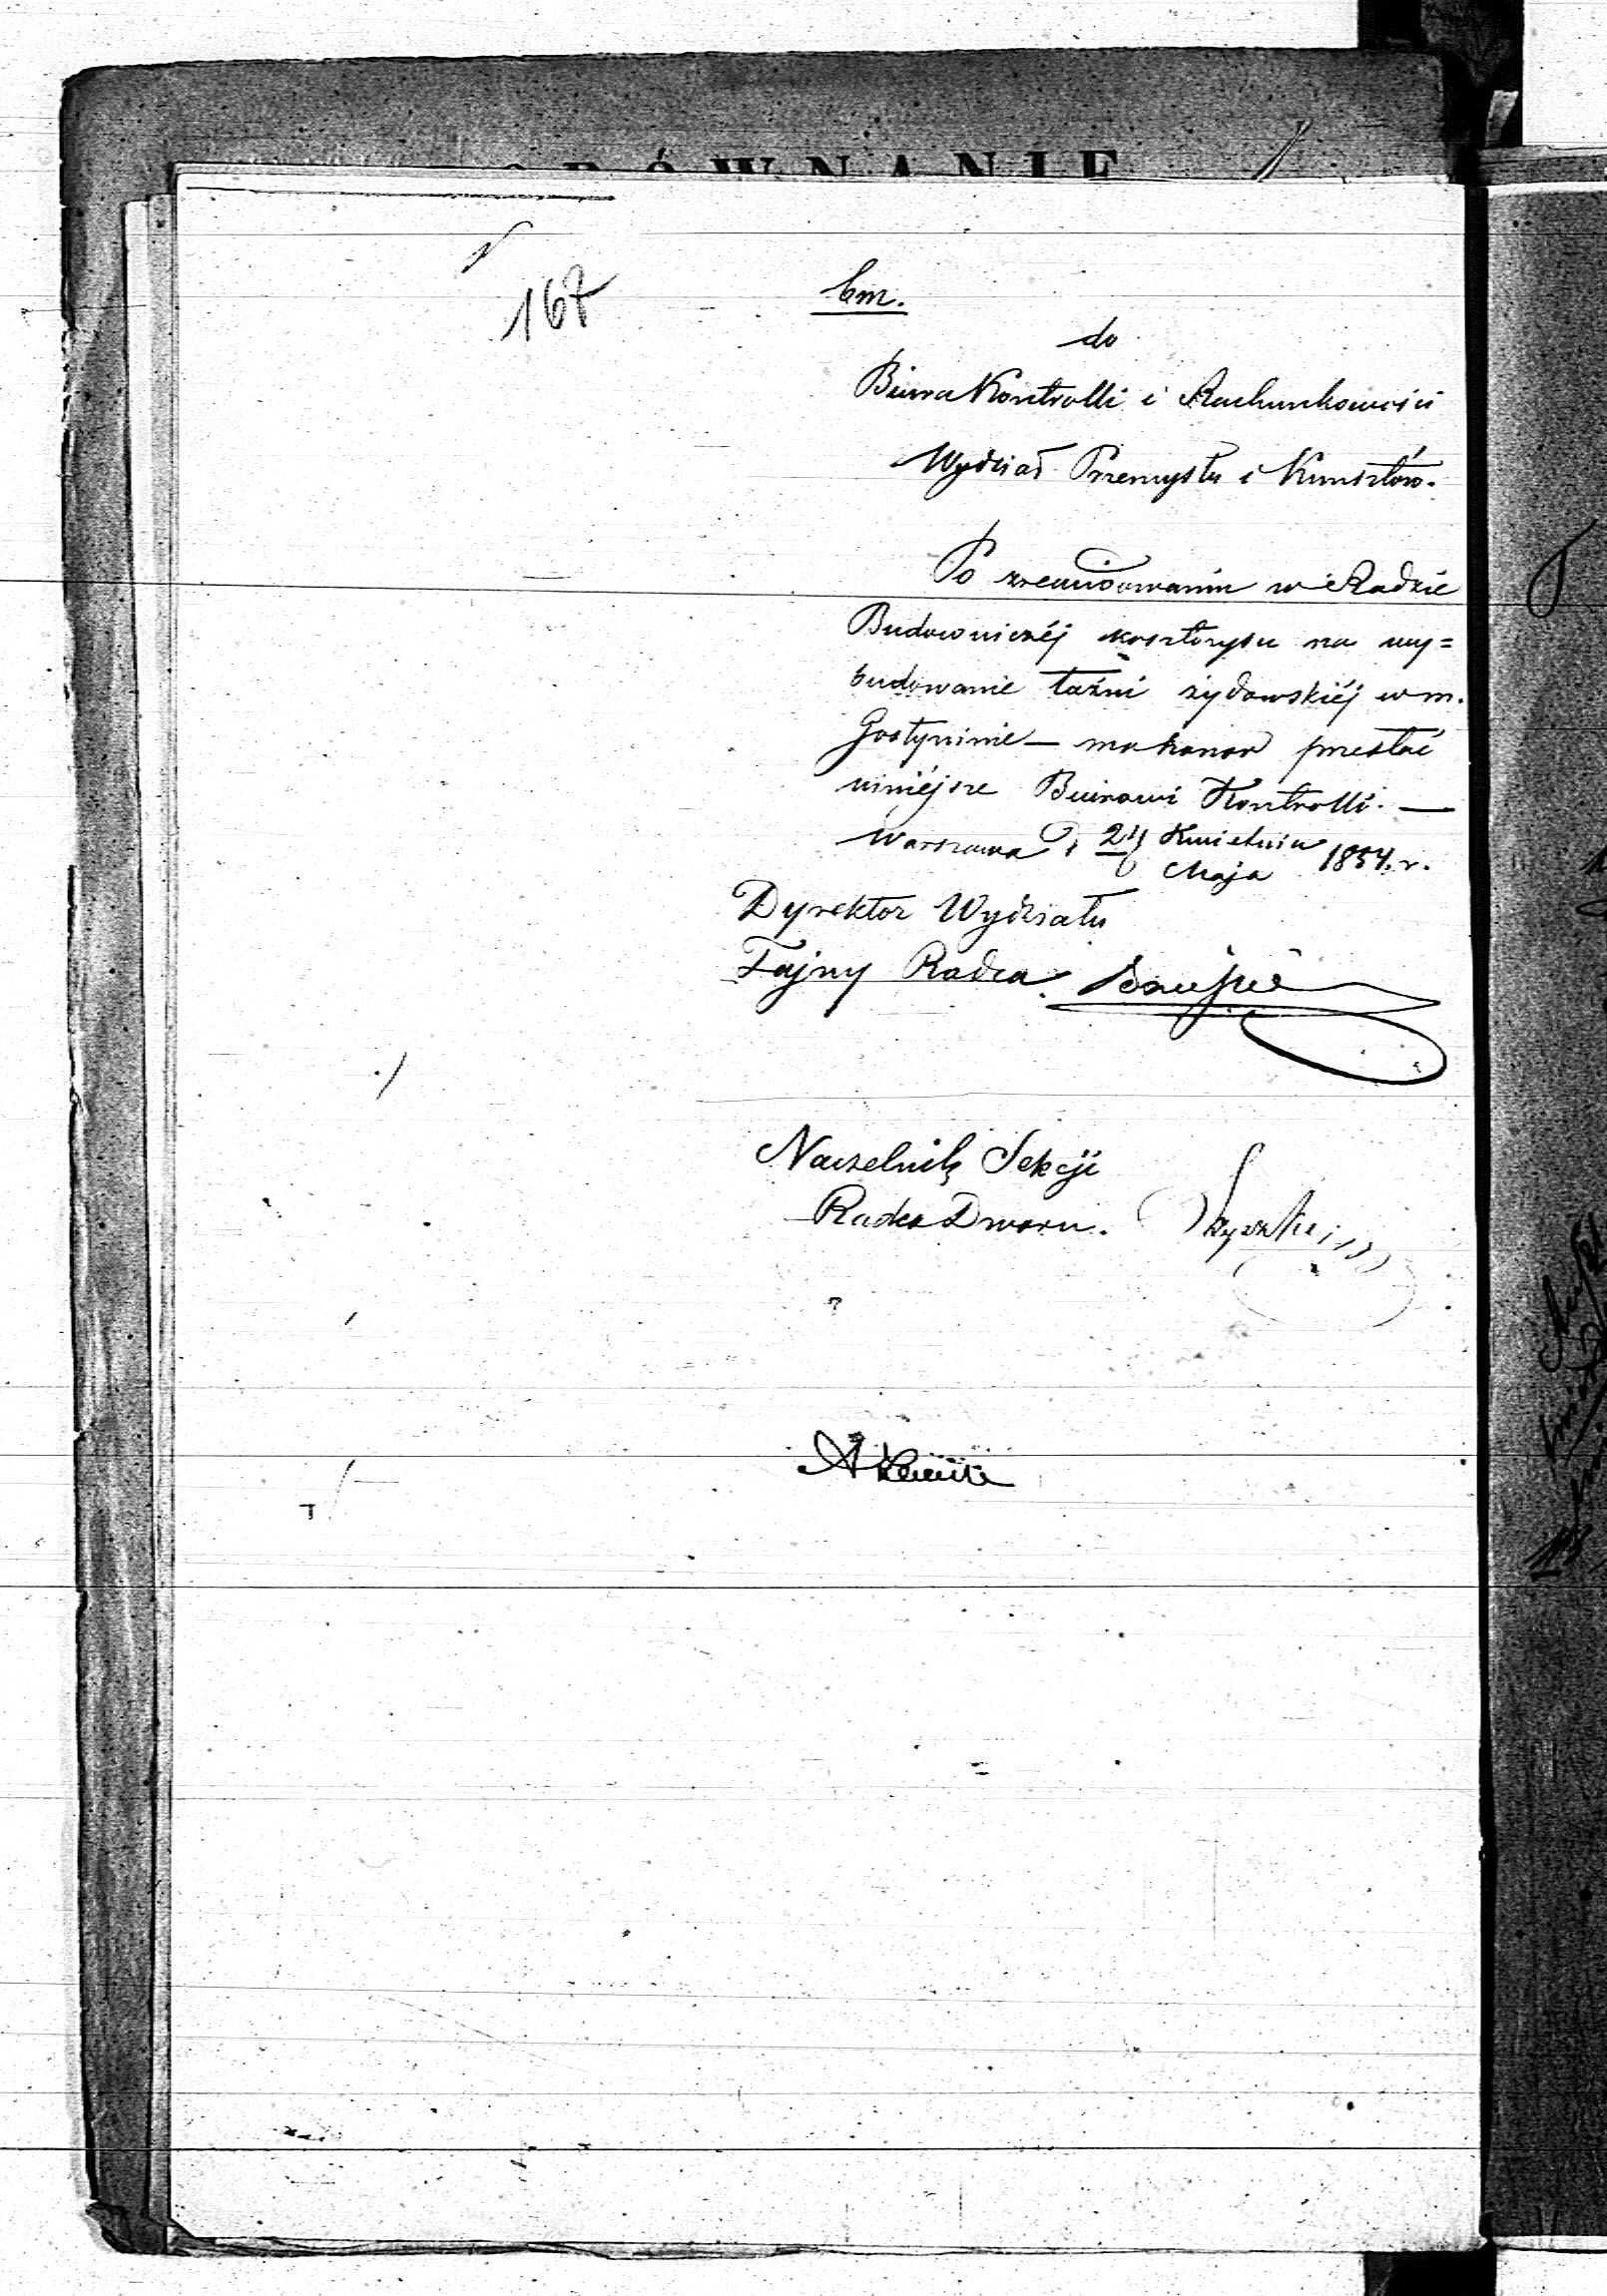 167
bm.
do
Biura Kontrolli i Rachunkowości
Wydział Przemysłu i Kunsztów.
Po zrewidowaniu w Radzie
Budowniczéj kosztorysu na wy=
budowanie łaźni żydowskiéj w m.
Gostyninie — ma honor przesłać
niniéjsze Biurowi Kontrolli. —
Warszawa d. Kwietnia
Maja 1854. r.
Dyrektor Wydziału
Tajny Radca
Naczelnik Sekcji
Radca Dworu.